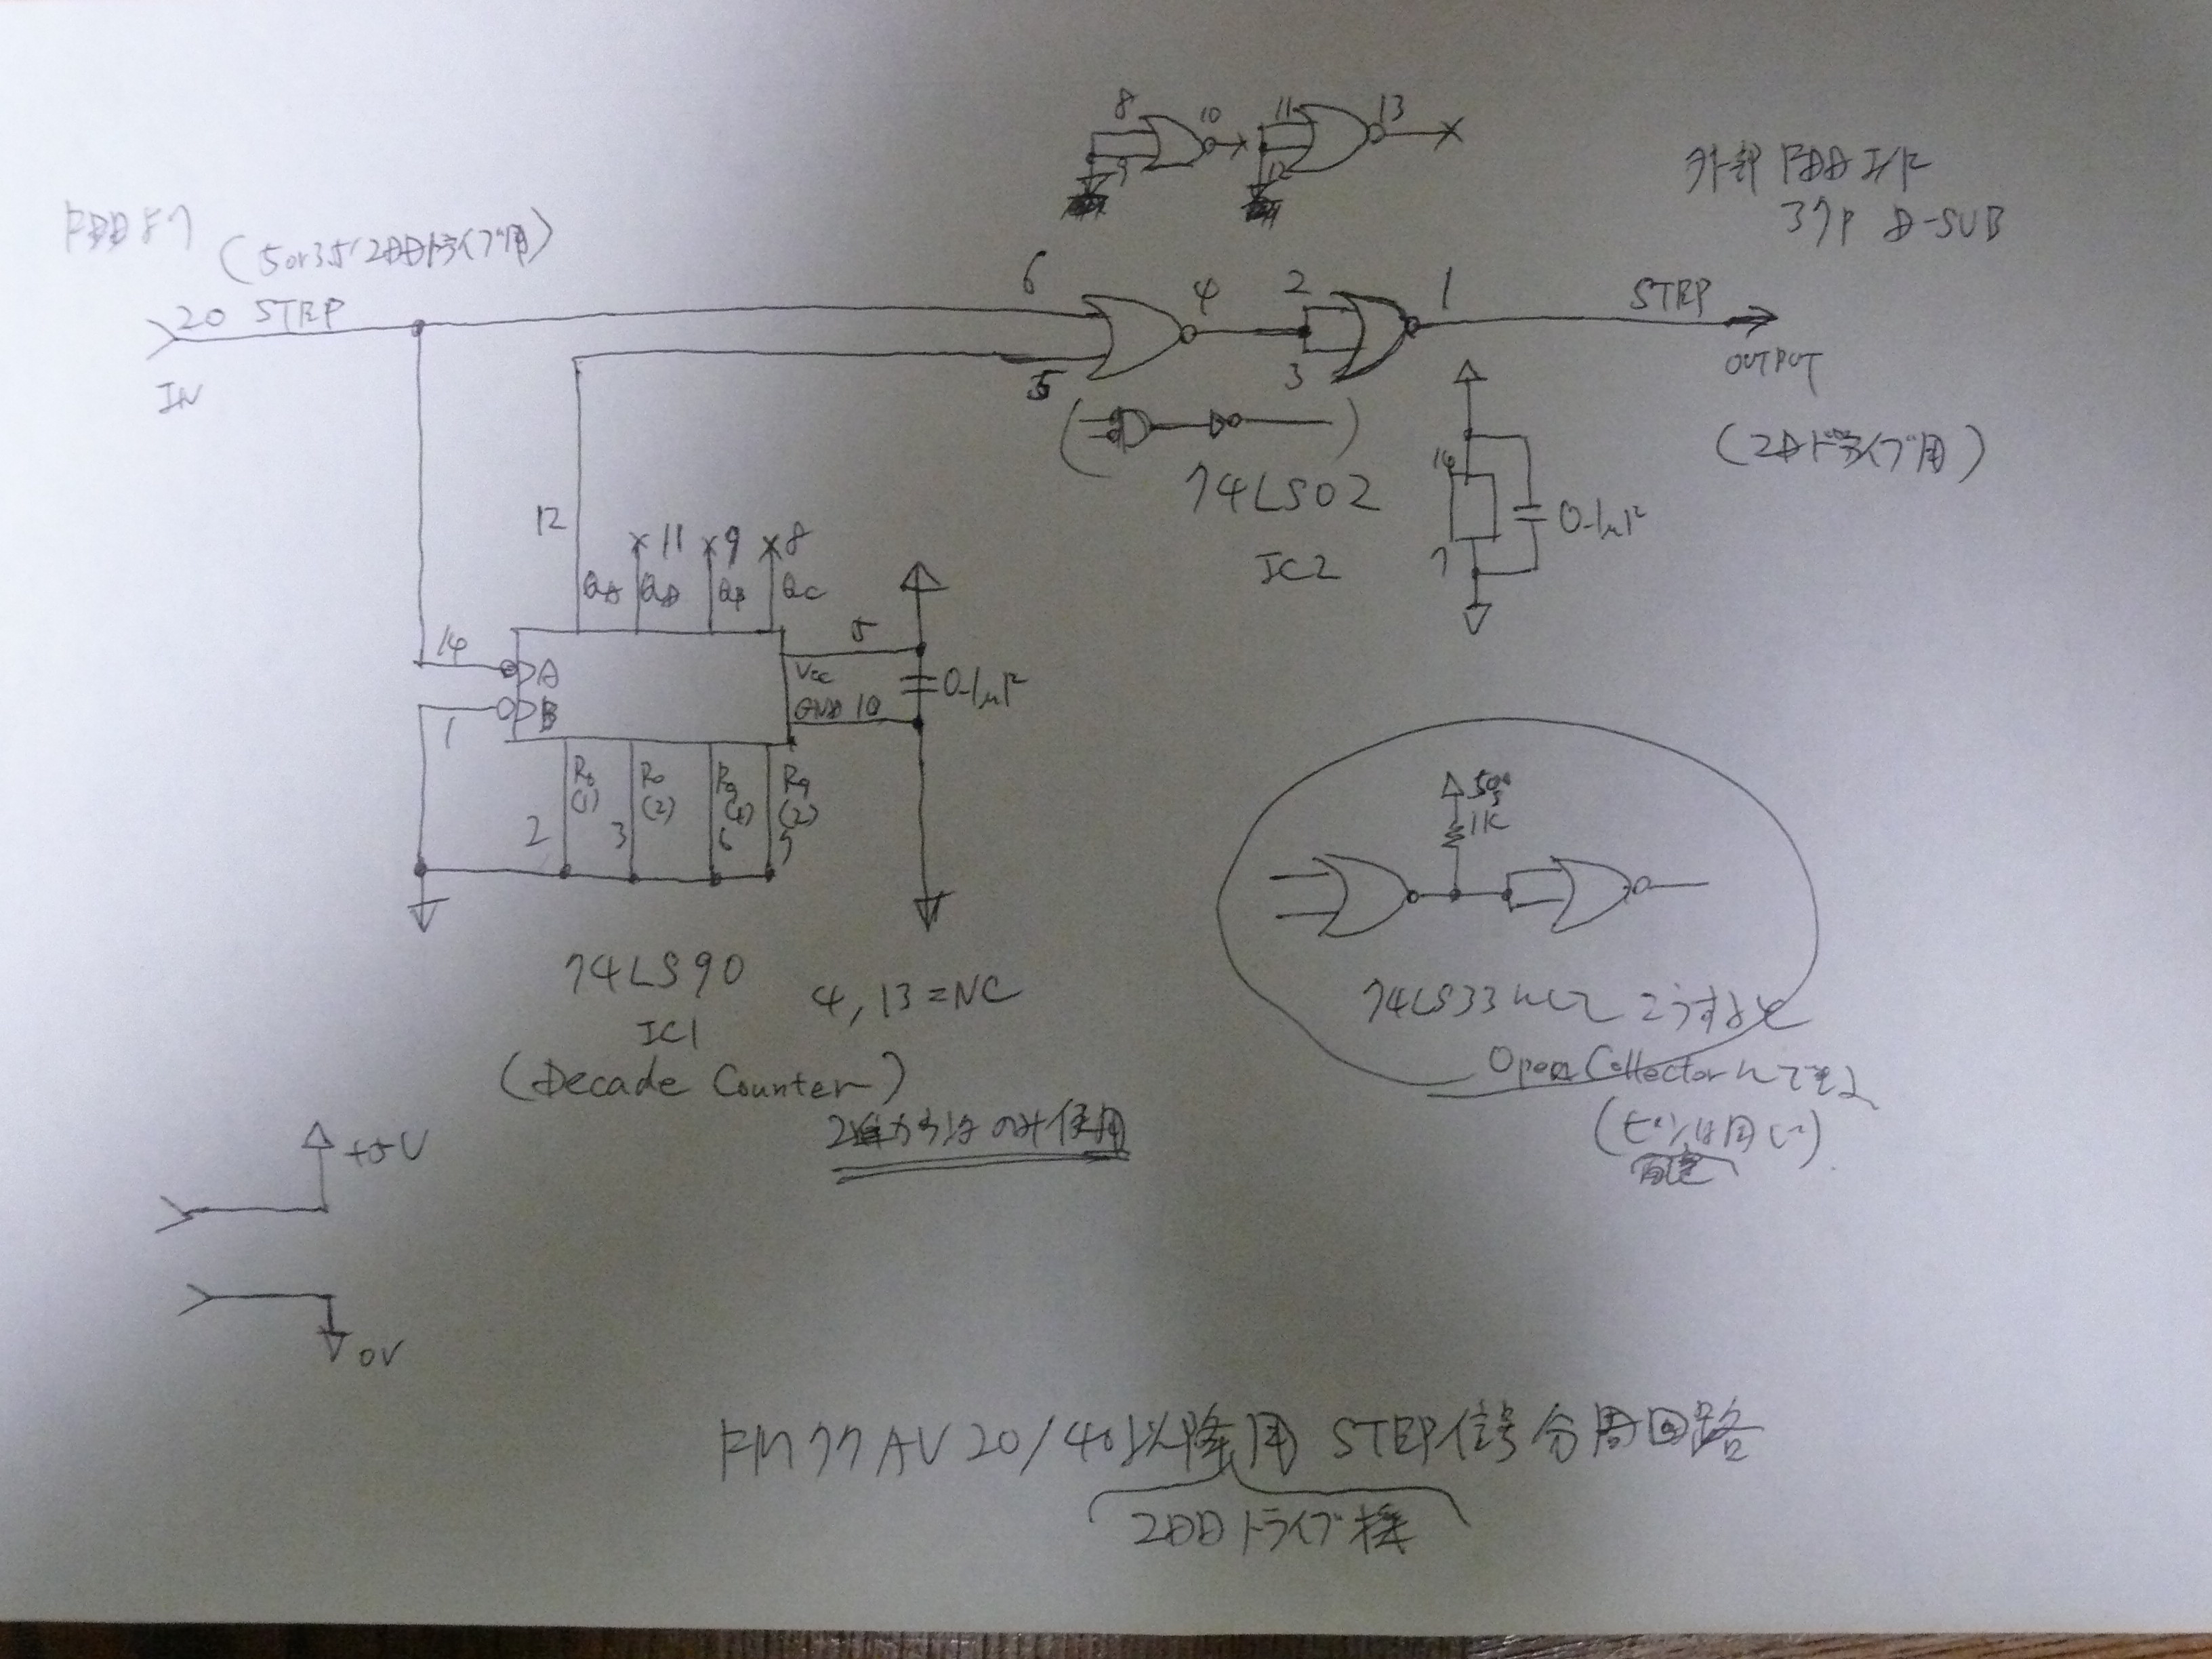 8
9
10
11
12
13
外部 FDD I/F
37P D-SUB
FDDより
(5 or 3.5' 2DDドライブ用)
20 STEP
IN
6
5
4
2
3
1
STEP
OUTPUT
(2Dドライブ用)
74LS02
IC2
14
7
0.1μF
12
×11 ×9 ×8
QA QD QB QC
14
1
A
B
5
Vcc
GND 10
0.1μF
R0(1) R0(2) R9(1) R9(2)
2 3 6 7
74LS90
IC1
4, 13 = NC
(Decade Counter)
2進カウンタのみ使用
1K
74LS33にしてこうすると
Open Collectorにできる
(ピンは同じ)
+5V
0V
FM77AV20/40以降用 STEP信号分周回路
2DDドライブ機